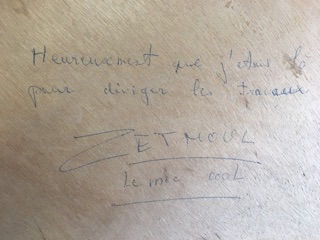 Heureusement que j'étais là
pour diriger les travaux
ZETMOUL
Le mec cool